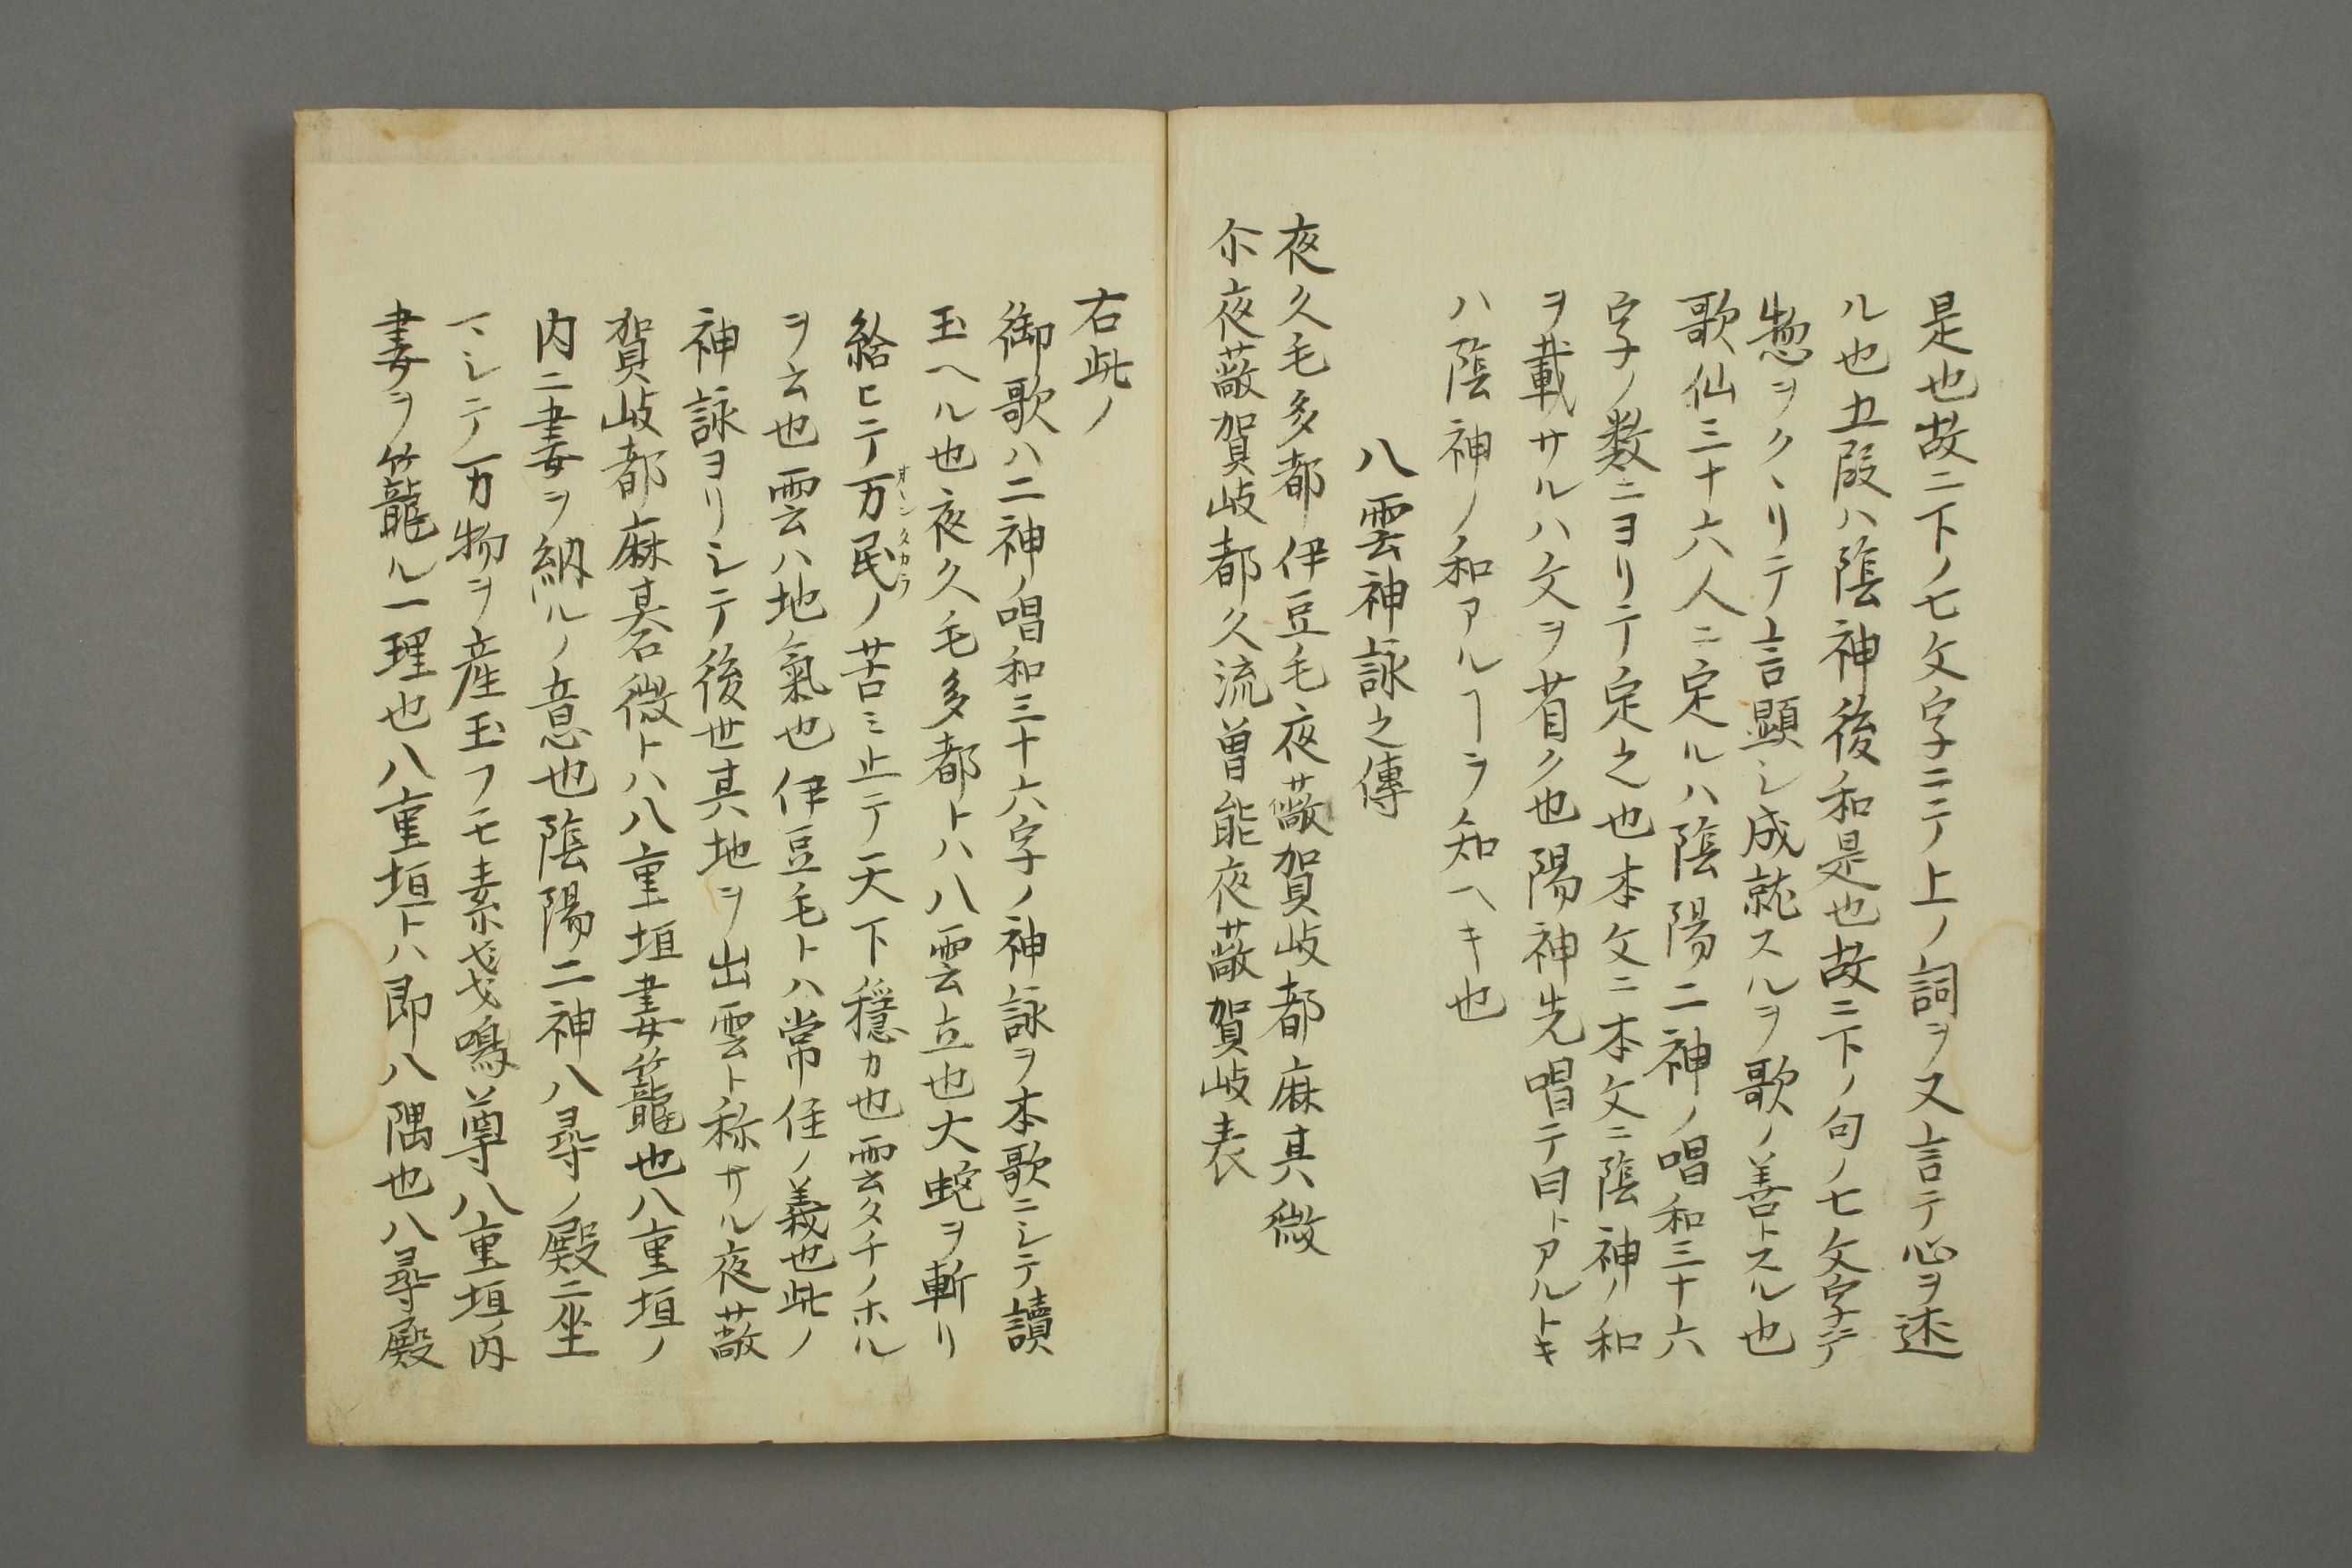 是也故ニ下ノ七文字ニテ上ノ詞ヲ又言テ心ヲ述
ル也五段ハ陰神後和是也故ニ下ノ句ノ七文字ニテ
惣ヲクヽリテ言顕シ成就スルヲ歌ノ善トスル也
歌仙三十六人ニ定ルハ陰陽二神ノ唱和三十六
字ノ数ニヨリテ定之也本文ニ本文ニ陰神ノ和
ヲ載サルハ文ヲ省ク也陽神先唱テ曰トアルトキ
ハ陰神ノ和アルヿヲ知ヘキ也
八雲神詠之傳
夜久毛多都伊豆毛夜蔽賀岐都麻其微
尒夜蔽賀岐都久流曽能夜蔽賀岐表
右此ノ
御歌ハ二神ノ唱和三十六字ノ神詠ヲ本歌ニシテ讀
玉ヘル也夜久毛多都トハ八雲立也大蛇ヲ斬リ
給ヒテ万民ノ苦ミ止テ天下穏カ也雲タチノホル
オンタカラ
ヲ云也雲ハ地氣也伊豆毛トハ常住ノ義也此ノ
神詠ヨリシテ後世其地ヲ出雲ト称サル夜蔽
賀岐都麻碁微トハ八重垣妻籠也八重垣ノ
内ニ妻ヲ納ルノ意也陰陽二神八尋ノ殿ニ坐
マシテ万物ヲ産玉フモ素戔嗚尊八重垣ノ内
妻ヲ籠ル一理也八重垣トハ即八隅也八尋殿